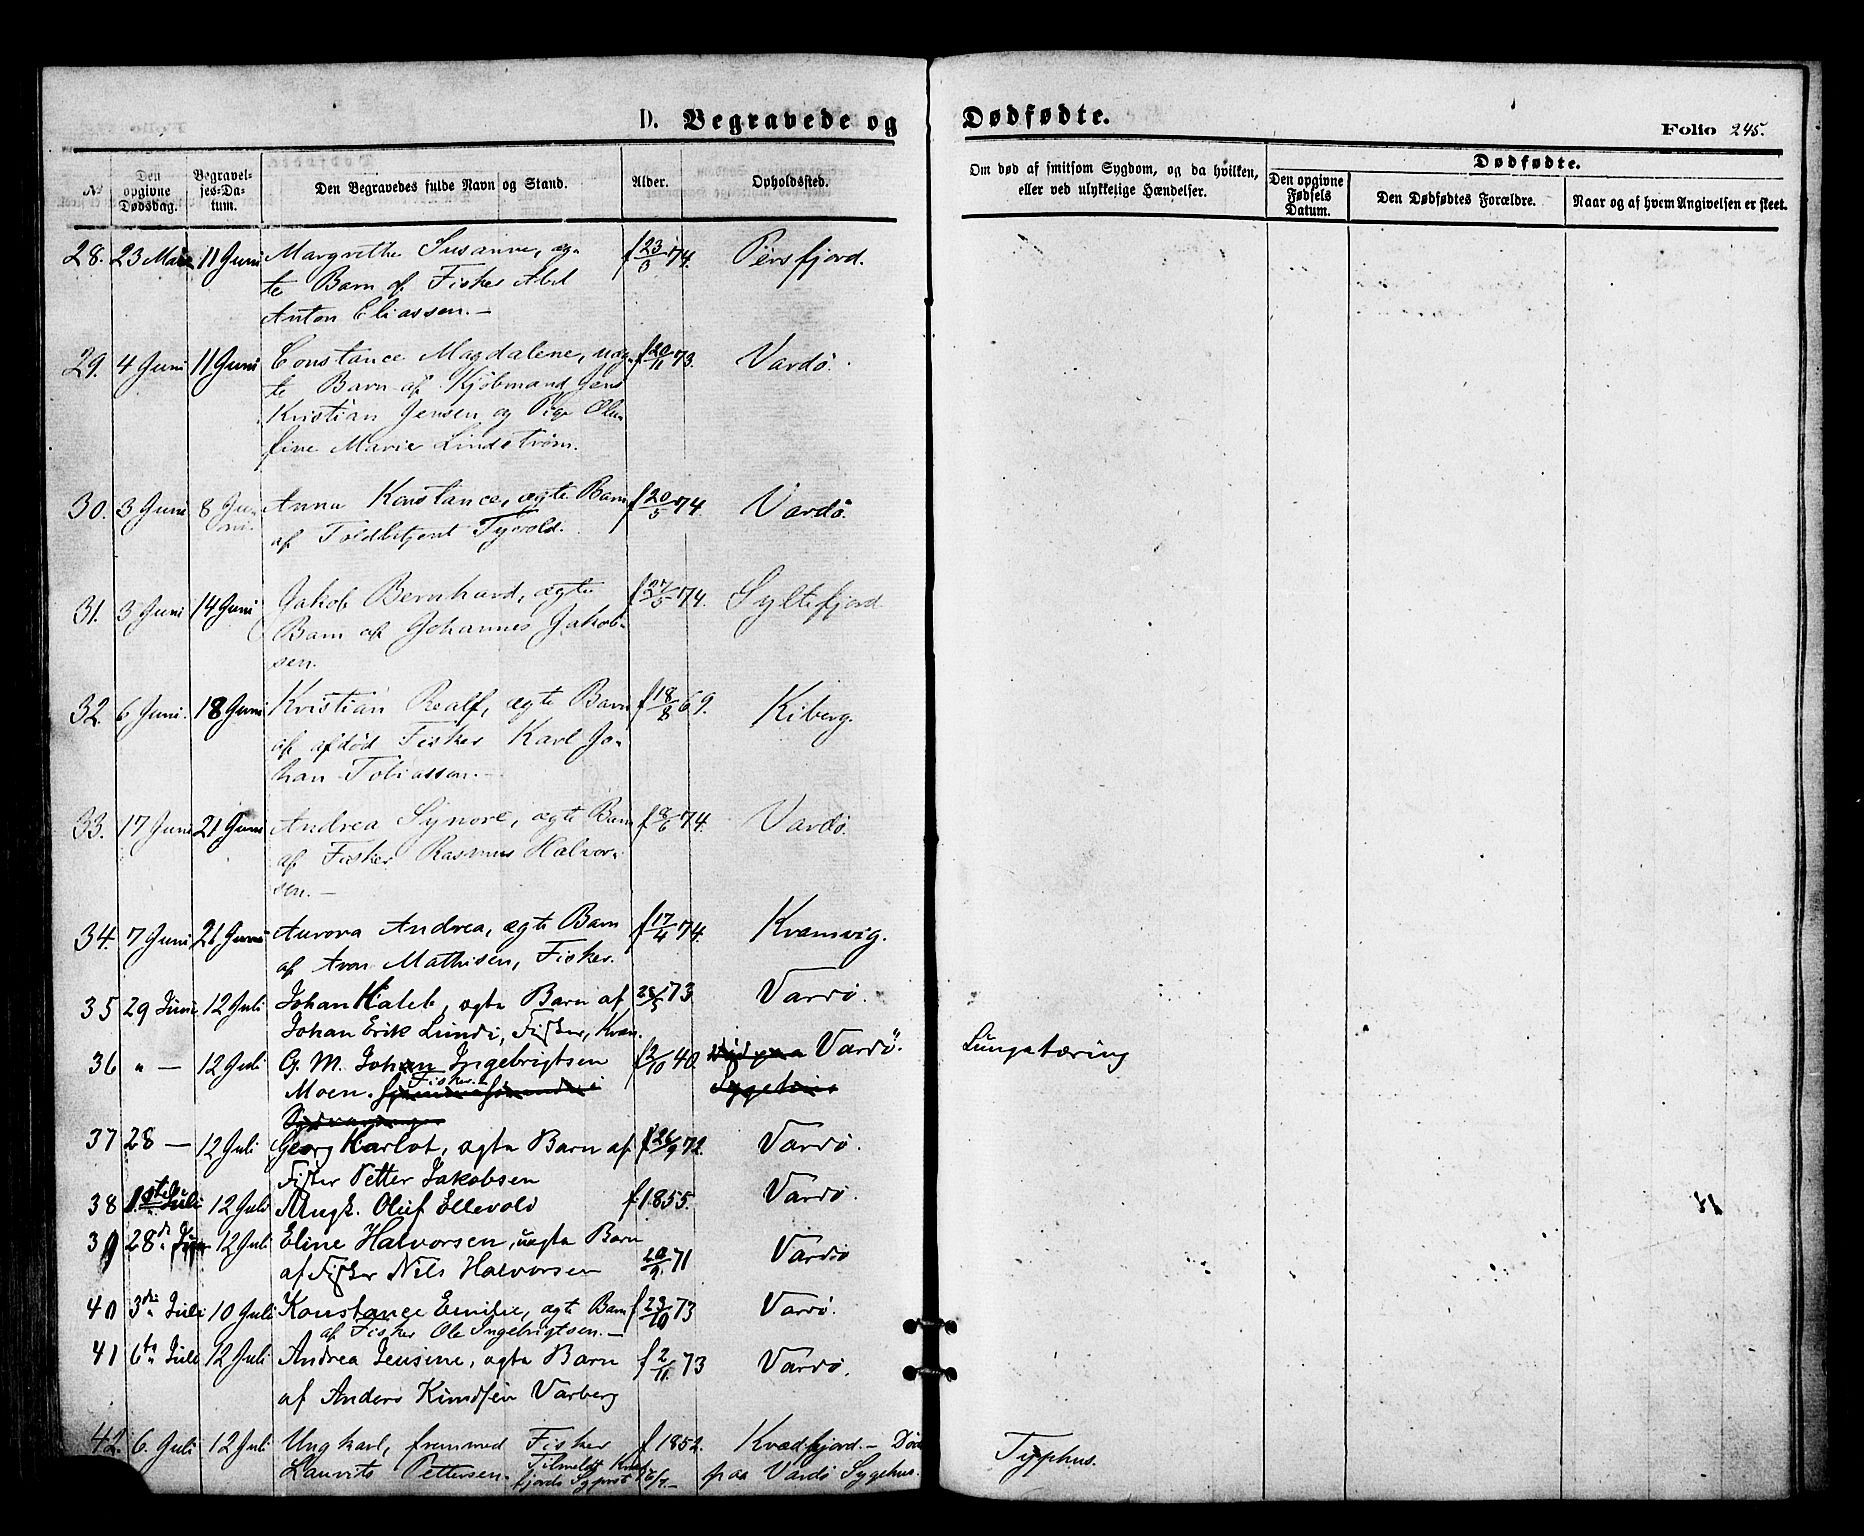 D. Begravede og Dødfødte.
Folio 245.
№
Den opgivne Dødsdag.
Begravelses-Datum.
Den Begravedes fulde Navn og Stand.
Alder.
Opholdssted.
Om død af smitsom Sygdom, og da hvilken,
eller ved ulykkelige Hændelser.
Dødfødte.
Den opgivne Fødsels Datum.
Den Dødfødtes Forældre.
Naar og af hvem Angivelsen er skeet.
28. 23 11 Juni Margrethe Susanne, æg- f 23/3 74. Persfjord.
te Barn af Fisker Abel
Anton Eliassen. —
29. 4 Juni 11 Juni Constance Magdalene, uæg- f 20/11 73. Vardø.
te Barn af Kjøbmand Jens
Kristian Jensen og Pige Olu-
fine Marie Lindstrøm.
30. 3 Juni 8 Ju- Anna Konstance, ægte Barn f 20/5 74. Vardø.
ni. af Toldbetjent Tyvold.
31. 3 Juni 14 Juni Jakob Bernhard, ægte f 27/5 74. Syltefjord
Barn af Johannes Jakob-
sen.
32. 6 Juni. 18 Juni Kristian Realf, ægte Barn f 18/8 69. Kiberg.
af afdød Fisker Karl Jo-
han Tobiassen. —
33. 17 Juni 21 Juni Andrea Synove, ægte Barn f 8/6 74. Vardø.
af Fisker Rasmus Halvor-
sen. —
34. 7 Juni 21 Juni Aurora Andrea, ægte Barn f 17/4 74. Kramvig.
af Aron Mathisen, Fisker.
35 29 Juni 12 Juli Johan Kaleb, ægte Barn af 73 Vardø.
Johan Erik Lundi, Fisker, Kvæn.
36 " — 12 Juli G. M. Johan Ingebrigtsen f 2/10 40. Vardö. Lungetæring
Moen. Fisker.
37 28 — 12 Juli Georg Karlot, ægte Barn af f 26/9 72. Vardø.
Fisker Petter Jakobsen
38 1ste Juli 12 Juli Ungk. Oluf Ellevold f 1855. Vardø.
39 28de 12 Juli Eline Halvorsen, uægte Barn 20/9 71 Vardø
af Fisker Nils Halvorsen
40 3die Juli 10 Juli Konstance Emilie, ægte Barn f 23/10 73 Vardø.
af Fisker Ole Ingebrigtsen. —
41 6te Juli 12 Juli Andrea Jensine, ægte Barn f 2/11 73 Vardø.
af Anders Knudsen Varberg
42. 6. Juli 12 Juli Ungkarl, fremmed Fisker f 1852. Kvædfjord. — Død Typhus.
Laurits Pettersen. Tilmeldt Kvæd- paa Vardø Sygehus.
fjords Sgprst 6/7. —